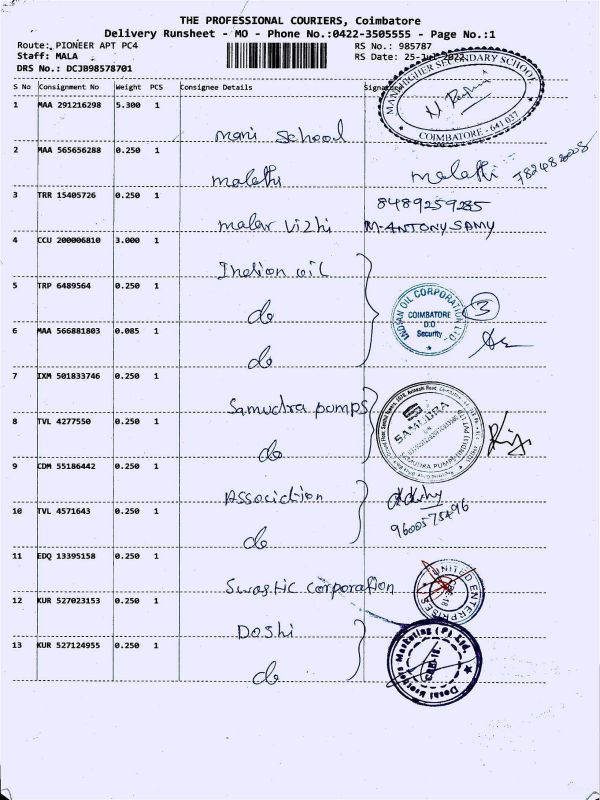 THE PROFESSIONAL COURIERS, Coimbatore
Delivery Runsheet - MO - Phone No.:0422-3505555 - Page No.:1
Route: PIONEER APT PC4
Staff: MALA
DRS No.: DCJB98578701
RS No.: 985787
RS Date: 25-Jul-2022
S No Consignment No Weight PCS Consignee Details Signature
1 MAA 291216298 5.300 1
Mani School
MANI HIGHER SECONDARY SCHOOL
COIMBATORE - 641 037
2 MAA 565656288 0.250 1
malathi malathi
3 TRR 15405726 0.250 1
8489259285
malar vizhi M. ANTONY SAMY
4 CCU 200006810 3.000 1
Indian oil
5 TRP 6489564 0.250 1
do
INDIAN OIL CORPORATION LTD.
COIMBATORE
D.O
Security
3
6 MAA 566881803 0.085 1
do
7 IXM 501833746 0.250 1
Samudra pumps
SAMUDRA
8 TVL 4277550 0.250 1
do
SAMUDRA PUMPS
9 CDM 55186442 0.250 1
Association
10 TVL 4571643 0.250 1
do
11 EDQ 13395158 0.250 1
Swastic corporation
UNITED ENTERPRISES
12 KUR 527023153 0.250 1
Doshi
13 KUR 527124955 0.250 1
do
Marketing (P) Ltd.
CBE-18.
Doshi